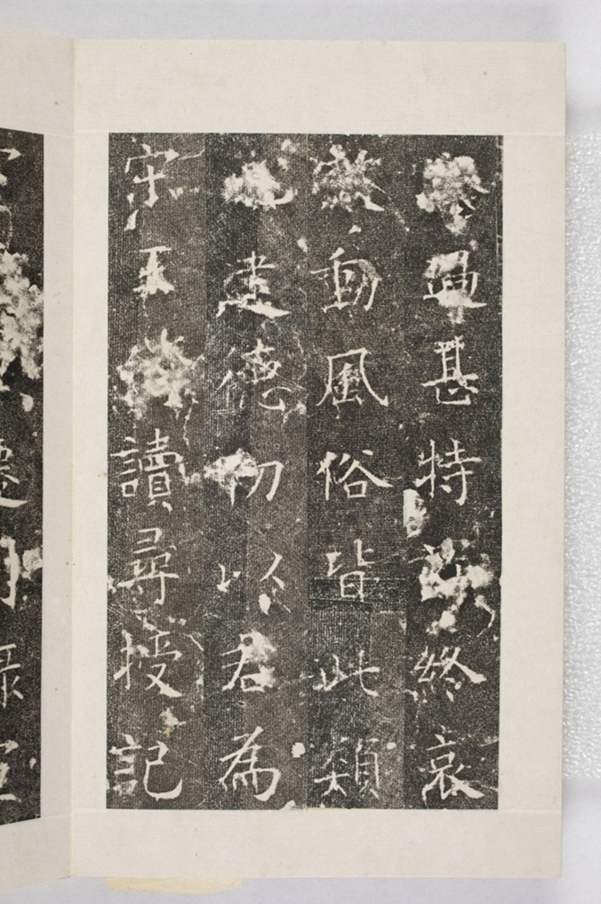 遇甚特終哀
動風俗皆此類
建德初以君為
宋王讀尋授記